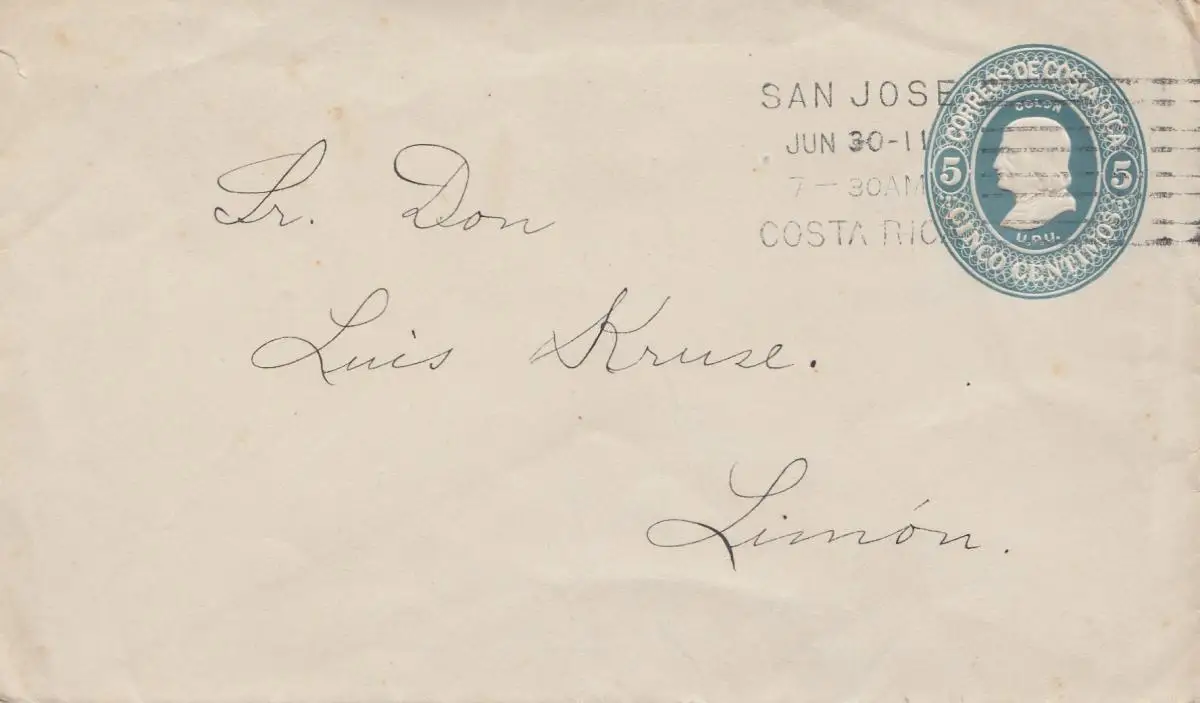 SAN JOSE
JUN 30-11
7-30AM
COSTA RICA
CORREOS DE COSTA RICA
COLON
5 5
U.P.U.
CINCO CENTIMOS
Sr. Don
Luis Kruse.
Limón.